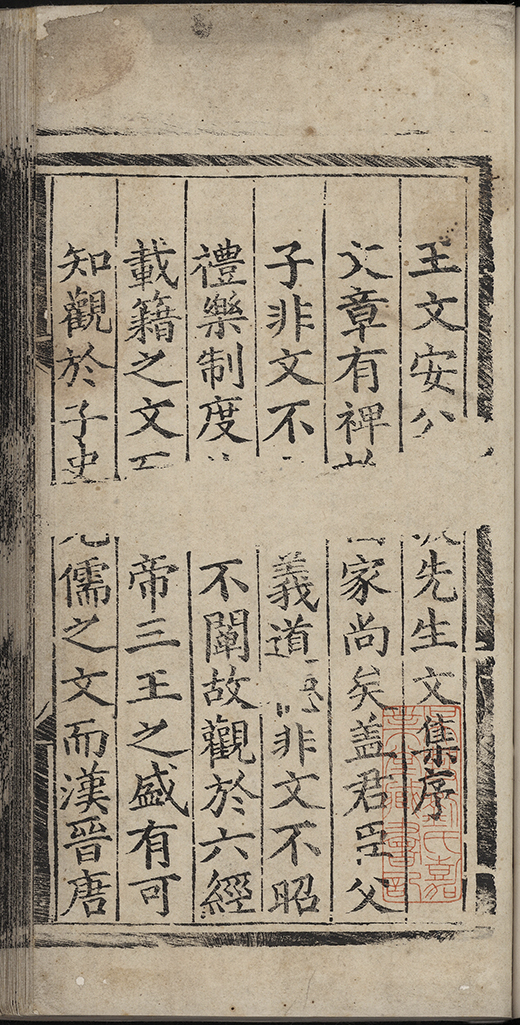 王文安公先生文集序
文章有裨家尚矣盖君臣父
子非文不義道非文不昭
禮樂制度不闡故觀於六經
載籍之文帝三王之盛有可
知觀於子史儒之文而漢晉唐